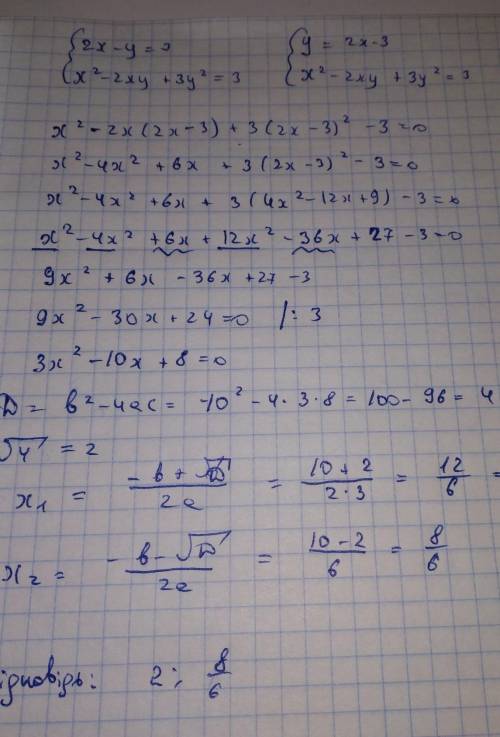 { 2x - y = 3
x² - 2xy + 3y² = 3
{ y = 2x - 3
x² - 2xy + 3y² = 3
x² - 2x (2x - 3) + 3 (2x - 3)² - 3 = 0
x² - 4x² + 6x + 3 (2x - 3)² - 3 = 0
x² - 4x² + 6x + 3 (4x² - 12x + 9) - 3 = 0
x² - 4x² + 6x + 12x² - 36x + 27 - 3 = 0
9x² + 6x - 36x + 27 - 3
9x² - 30x + 24 = 0 /: 3
3x² - 10x + 8 = 0
D = в² - 4ac = -10² - 4 · 3 · 8 = 100 - 96 = 4
√4 = 2
x₁ = (-в + √D)/2a = (10 + 2)/(2·3) = 12/6 =
x₂ = (-в - √D)/2a = (10 - 2)/6 = 8/6
ідповідь: 2; 8/6